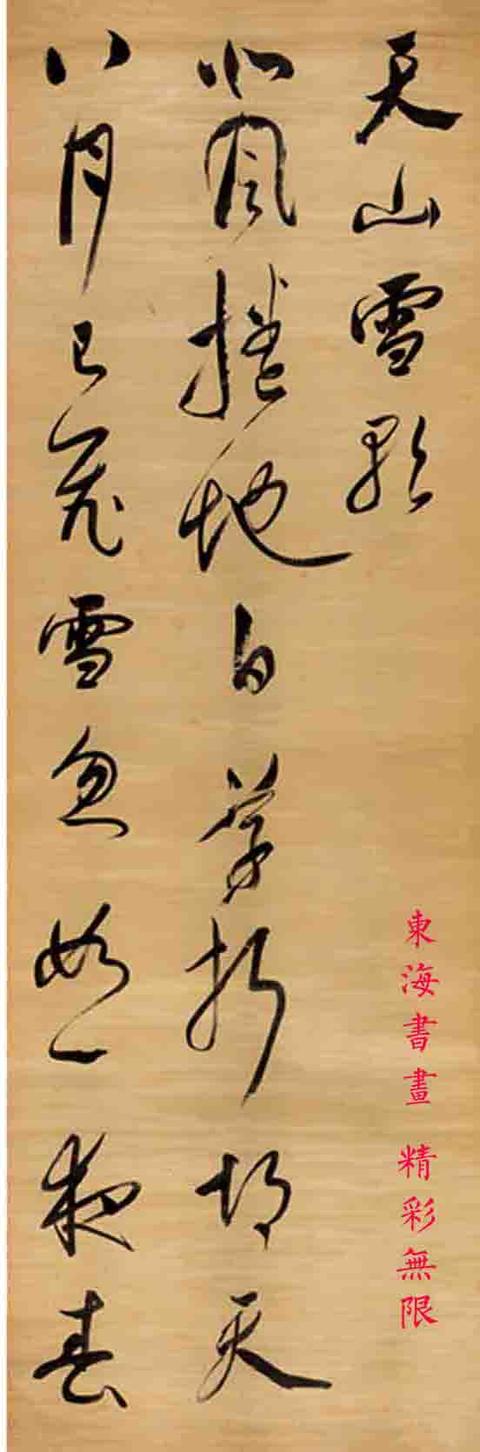 天山雪歌
北風捲地白草折胡天
八月已飛雪忽如一夜春
東海書畫 精彩無限